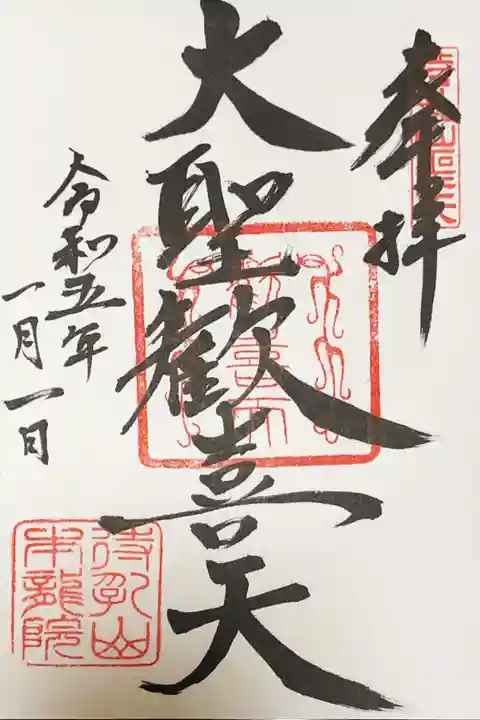 奉拝
大聖歓喜天
令和五年
一月一日
待乳山
本龍院